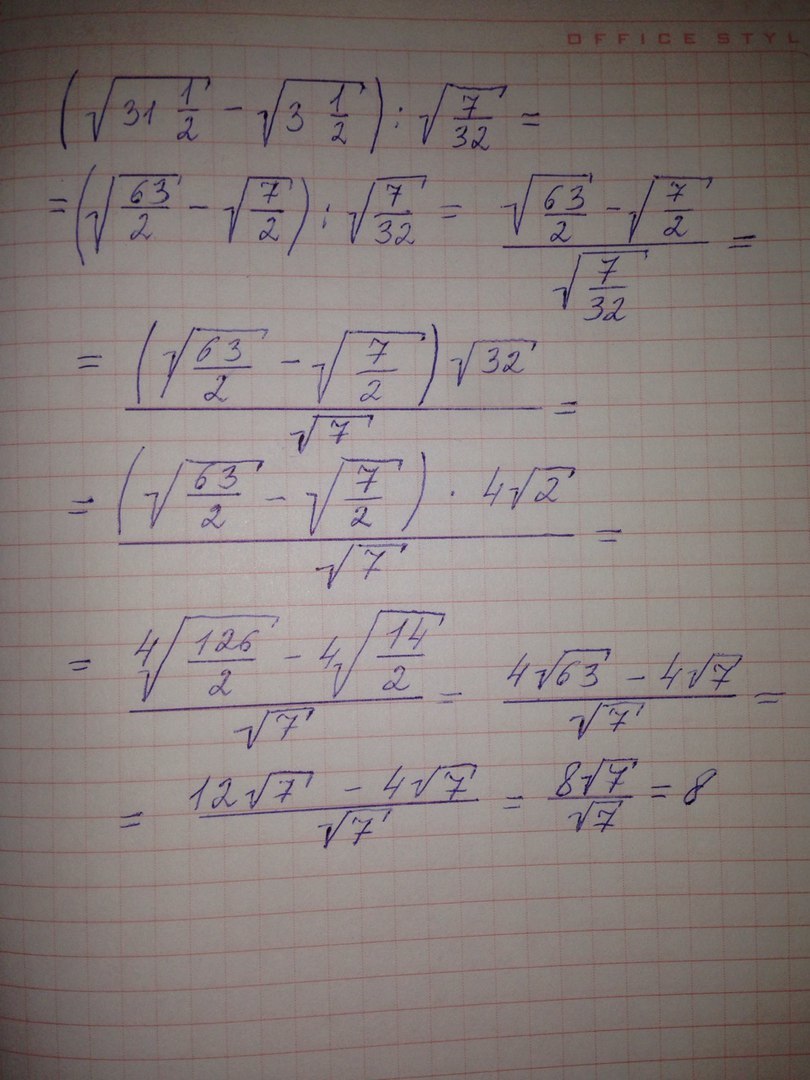 OFFICE STYL
(√(31 1/2) - √(3 1/2)) : √(7/32) =
= (√(63/2) - √(7/2)) : √(7/32) = (√(63/2) - √(7/2)) / √(7/32) =
= ((√(63/2) - √(7/2)) √32) / √7 =
= ((√(63/2) - √(7/2)) · 4√2) / √7 =
= (4√(126/2) - 4√(14/2)) / √7 = (4√63 - 4√7) / √7 =
= (12√7 - 4√7) / √7 = 8√7 / √7 = 8